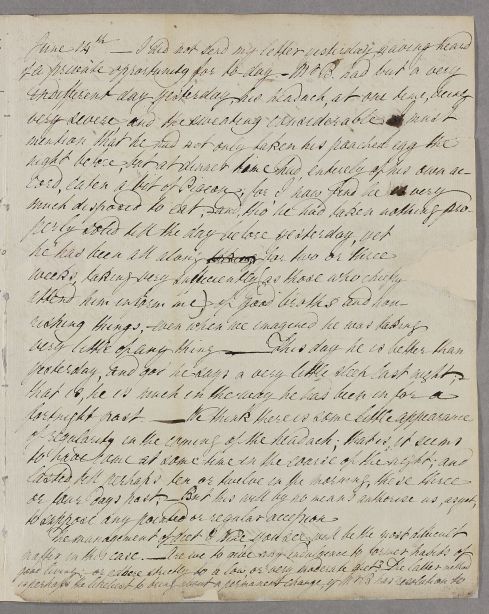 June 14th — I did not send my letter yesterday, having heard
of a private opportunity for to day — Mr B. had but a very
indifferent day yesterday, his headach, at one time, being
very severe and the sweating considerable. I must
mention that he had not only taken his poached egg the
night before, but at dinner time had, entirely of his own ac-
cord, eaten a bit of Bacon; for I now find he is very
much disposed to eat, and, tho' he had taken nothing pro-
perly solid till the day before yesterday, yet
he has been all along for two or three
weeks, taking very sufficiently (as those who chiefly
attend him inform me) of good broths and nou-
rishing things, even when we imagined he was taking
very little of any thing — This day he is better than
yesterday, and got he says a very little sleep last night,
that is, he is much in the way he has been in for a
fortnight past — We think there is some little appearance
of regularity in the coming of the headach; that is, it seems
to have come at some time in the course of the night; and
lasted till perhaps ten or twelve in the morning, these three
or four days past. — But this will by no means authorise us, as yet,
to suppose any periodic or regular accession
The management of diet I see you see will be the most difficult
matter in this case. — to former habits of
or adhere strictly to a low, or very moderate diet. The latter
is perhaps the likeliest to bring about a permanent change, if Mr B. has resolution to